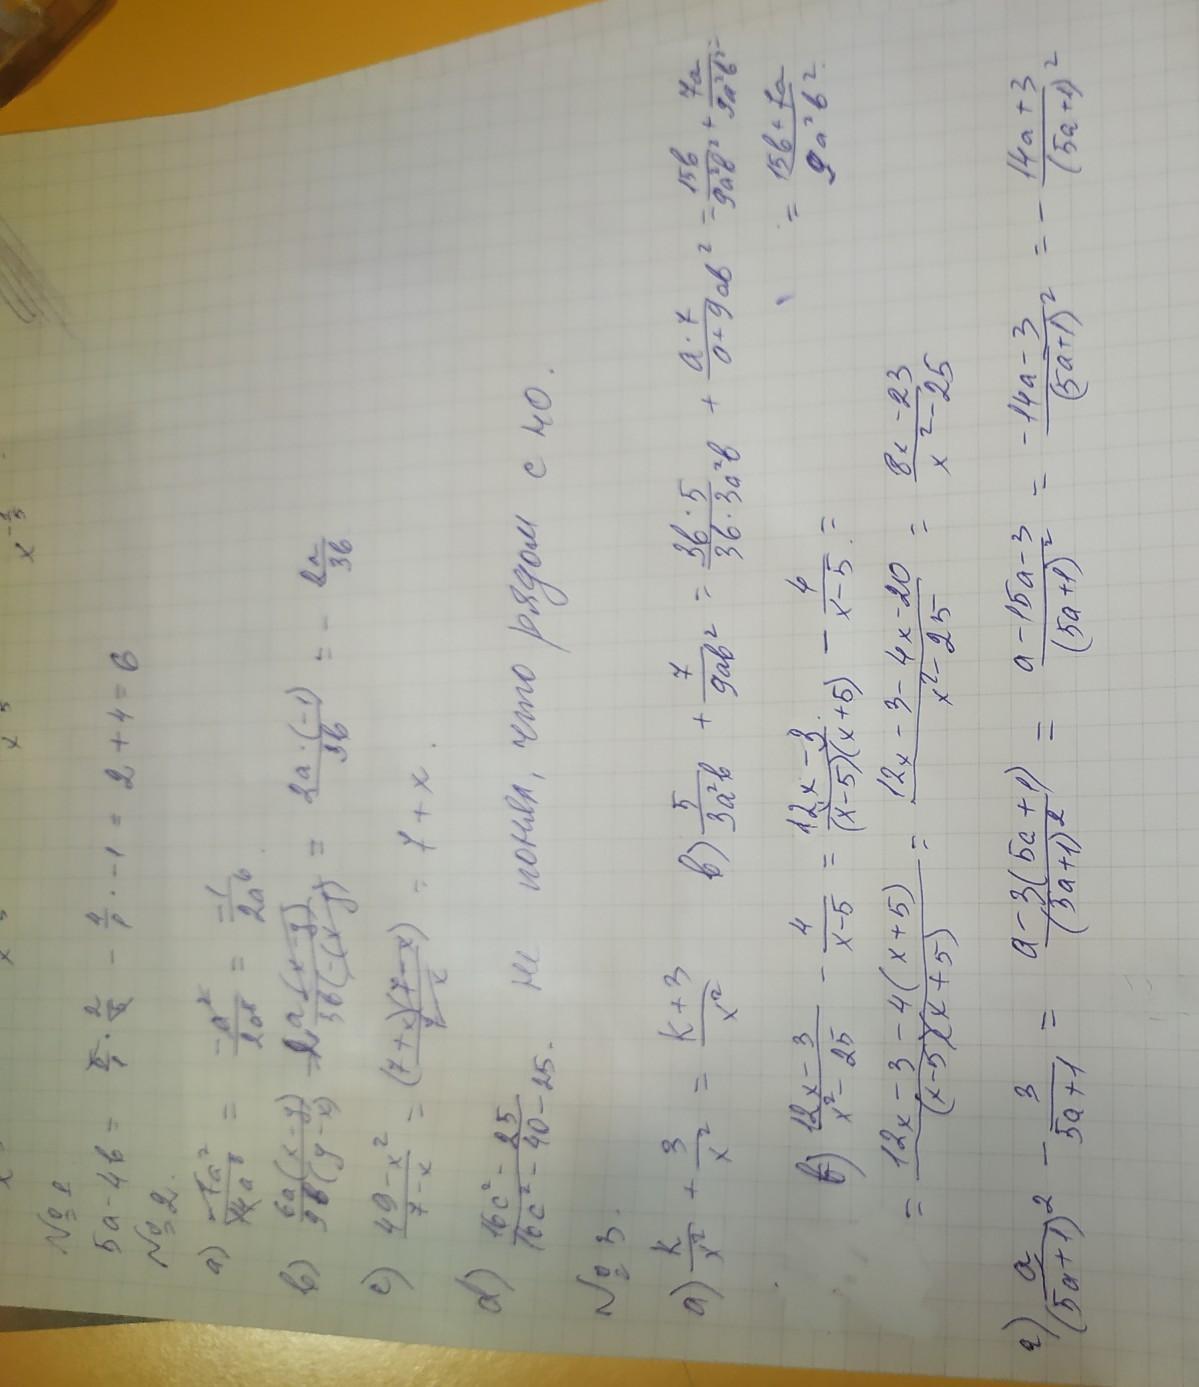 № 1
5a - 4b = 5/1 · 2/5 - 4/1 · -1 = 2 + 4 = 6
№ 2.
a) -7a²/14a⁸ = -a²/2a⁸ = -1/2a⁶
b) 6a(x-y)/9b(y-x) = 2a(x-y)/3b(-(x-y)) = 2a·(-1)/3b = - 2a/3b
c) 49-x²/7-x = (7+x)(7-x)/7-x = 7+x.
d) 16c²-25/16c²-40-25. не понял, что рядом с 40.
№ 3.
a) k/x² + 3/x² = k+3/x²
в) 5/3a²b + 7/9ab² = 3b·5/3b·3a²b + a·7/a·9ab² = 15b/9a²b² + 7a/9a²b² =
= 15b+7a/9a²b².
б) 12x-3/x²-25 - 4/x-5 = 12x-3/(x-5)(x+5) - 4/x-5 =
= 12x-3-4(x+5)/(x-5)(x+5) = 12x-3-4x-20/x²-25 = 8x-23/x²-25
г) a/(5a+1)² - 3/5a+1 = a-3(5a+1)/(5a+1)² = a-15a-3/(5a+1)² = -14a-3/(5a+1)² = - 14a+3/(5a+1)²